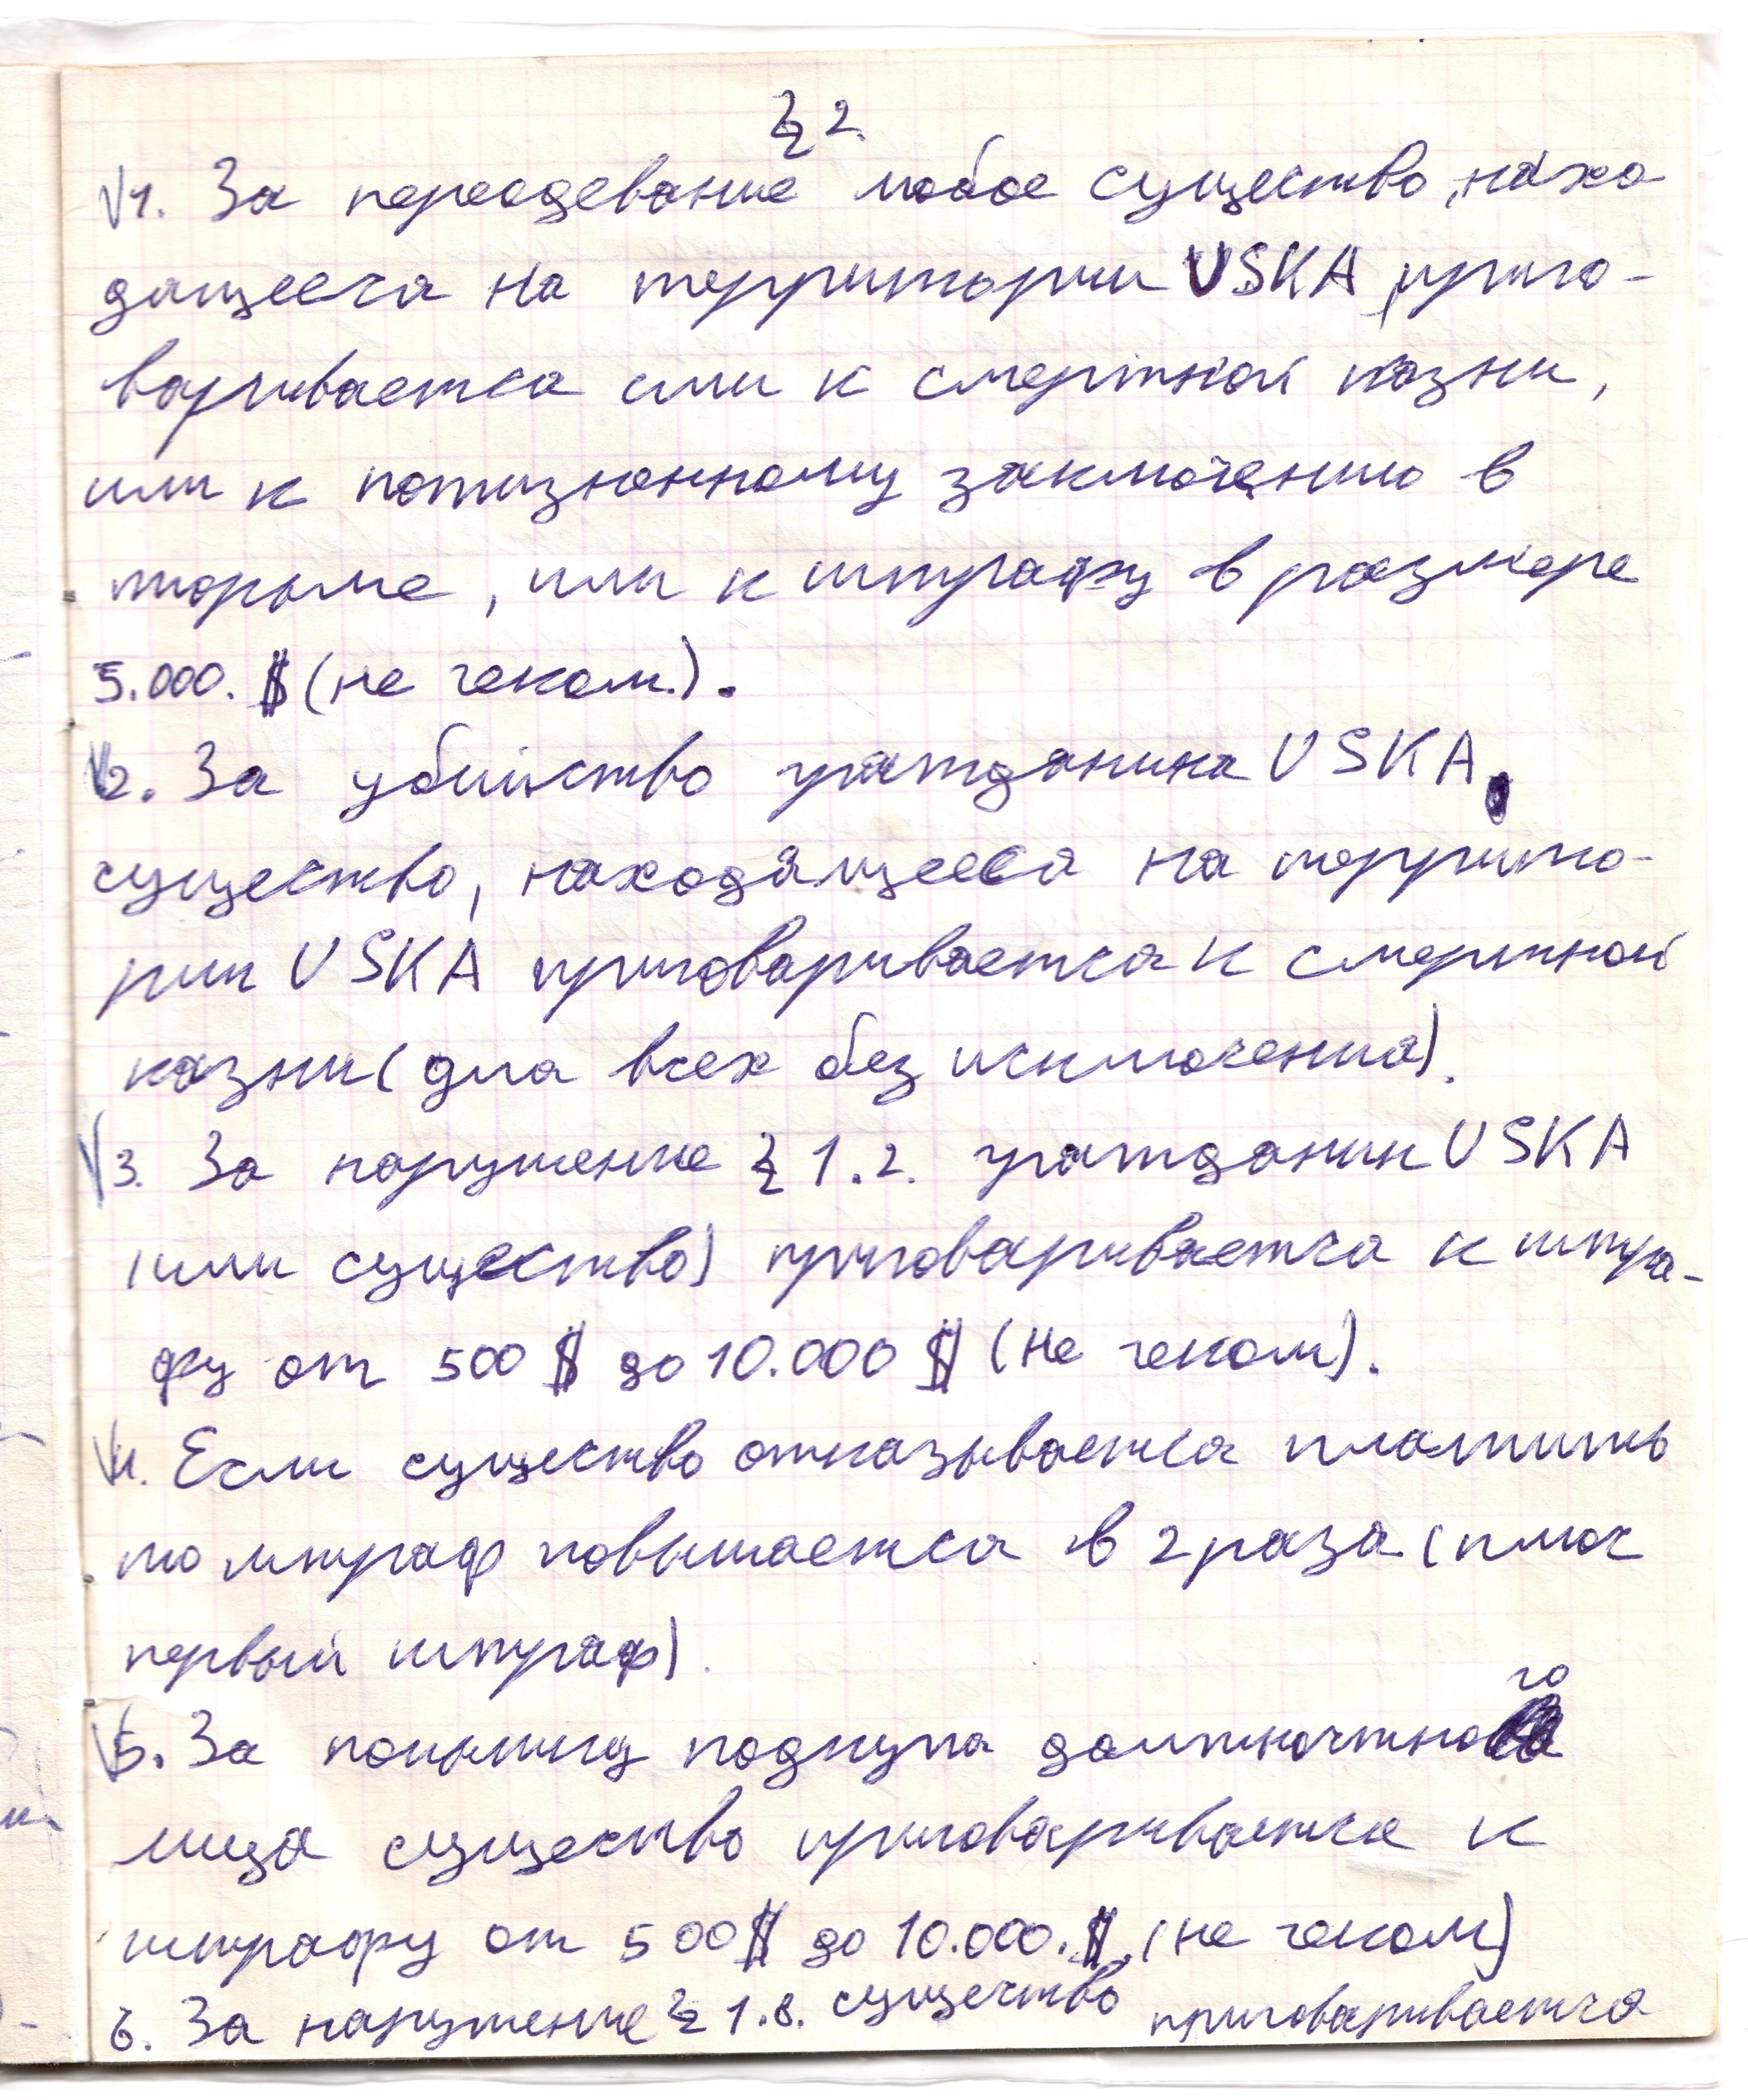 § 2.
√1. За переодевание любое существо, нахо
дящееся на территории USKA, приго-
варивается или к смертной казни,
или к пожизненному заключению в
тюрьме, или к штрафу в размере
5.000. $ (не чеком.).
√2. За убийство гражданина USKA,
существо, находящееся на террито-
рии USKA приговаривается к смертной
казни (для всех без исключения).
√3. За нарушение § 1.2. гражданин USKA
(или существо) приговаривается к штра-
фу от 500 $ до 10.000 $ (не чеком).
√4. Если существо отказывается платить
то штраф повышается в 2 раза (плюс
первый штраф).
√5. За попытку подкупа должностного
лица существо приговаривается к
штрафу от 500 $ до 10.000. $. (не чеком)
6. За нарушение § 1.8. существо приговаривается